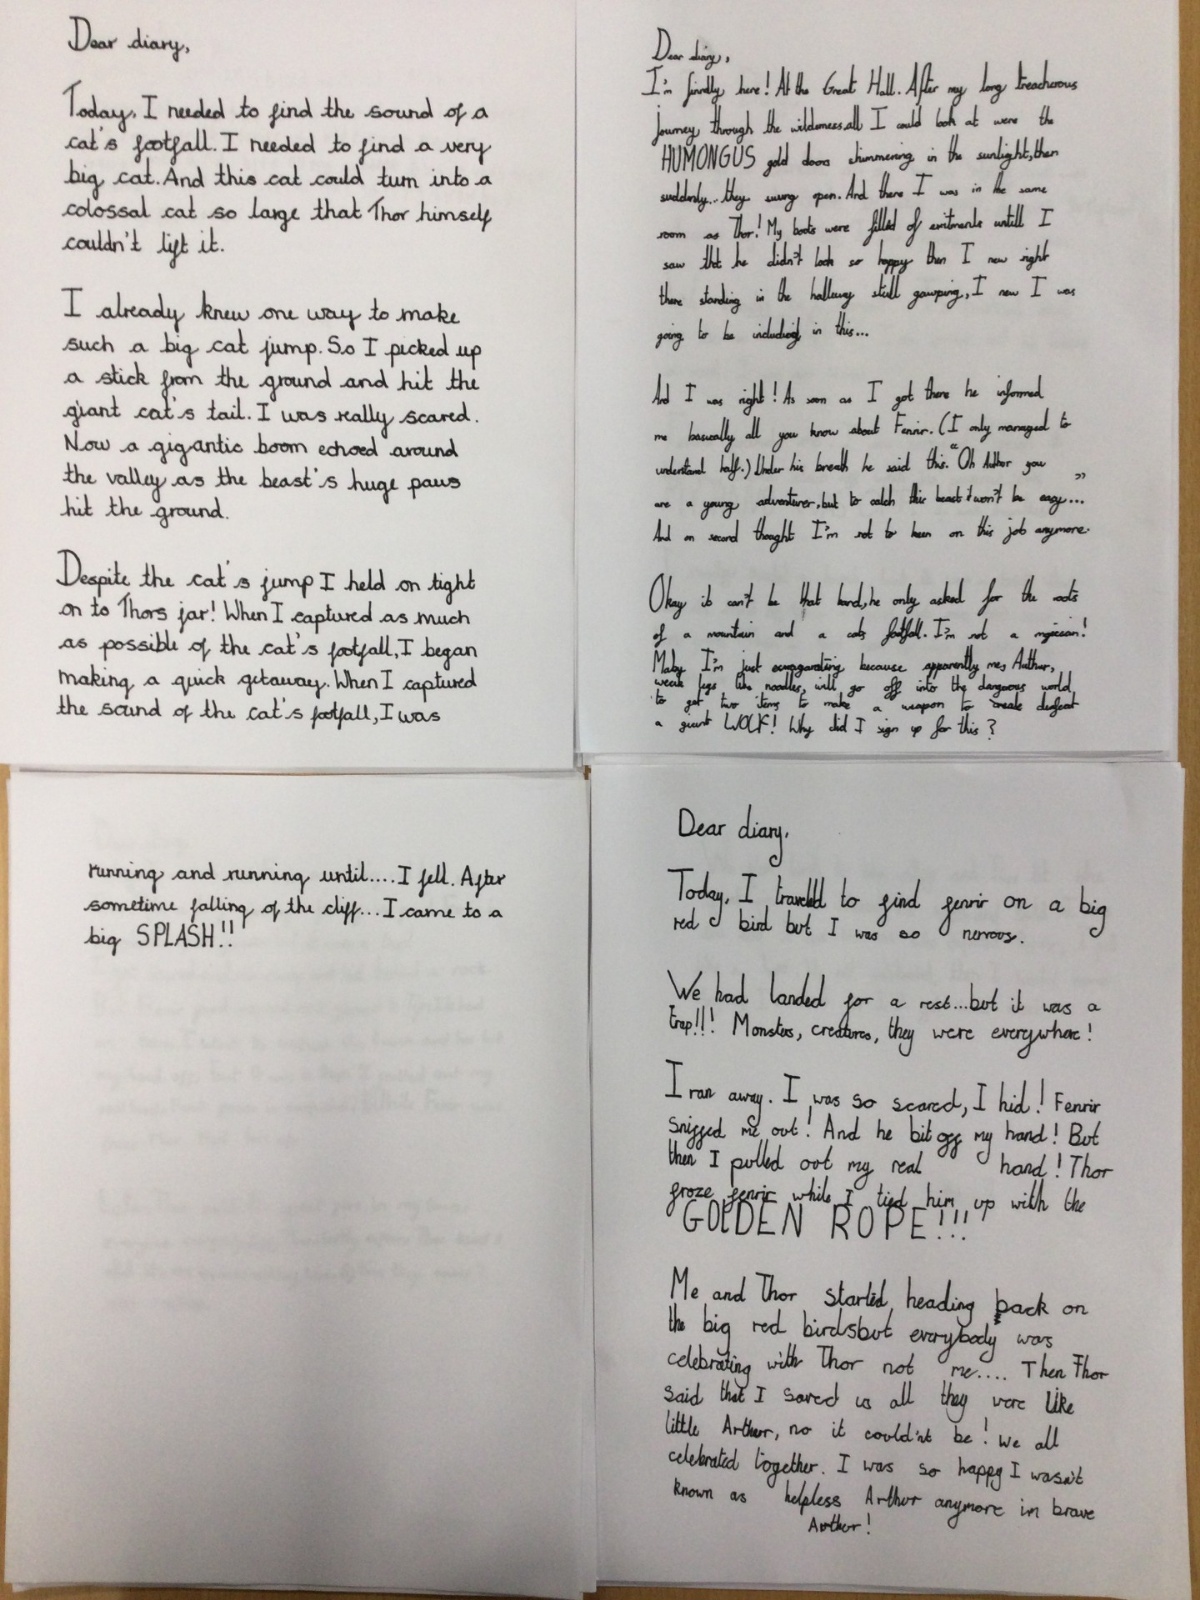 Dear diary,
Today, I needed to find the sound of a
cat's footfall. I needed to find a very
big cat. And this cat could turn into a
colossal cat so large that Thor himself
couldn't lift it.
I already knew one way to make
such a big cat jump. So I picked up
a stick from the ground and hit the
giant cat's tail. I was really scared.
Now a gigantic boom echoed around
the valley as the beast's huge paws
hit the ground.
Despite the cat's jump I held on tight
on to Thors jar! When I captured as much
as possible of the cat's footfall, I began
making a quick getaway. When I captured
the sound of the cat's footfall, I was
Dear diary,
I'm finally here! At the Great Hall. After my long treacherous
journey through the wilderness,all I could look at were the
HUMONGUS gold doors shimmering in the sunlight,then
suddenly...they swung open. And there I was in the same
room as Thor! My boots were filled of exitments untill I
saw that he didn't look so happy then I new right
there standing in the hallway still gawping, I new I was
going to be including in this...
And I was right! As soon as I got there he informed
me basically all you know about Fenrir. (I only managed to
understand half.) Under his breath he said this. "Oh Author you
are a young adventurer, but to catch this beast won't be easy..."
And on second thought I'm not to keen on this job anymore.
Okay it can't be that hard, he only asked for the roots
of a mountain and a cats footfall. I'm not a magician!
Maby I'm just because apparently me, Author,
weak legs like noodles, will go off into the dangerous world
to get two items to make a weapon to create defeat
a giant WOLF! Why did I sign up for this?
running and running until....I fell. After
sometime falling of the cliff...I came to a
big SPLASH!!
Dear diary,
Today, I travelld to find fenrir on a big
red bird but I was so nervous.
We had landed for a rest...but it was a
trap!!! Monsters, creatures, they were everywhere!
I ran away. I was so scared, I hid! Fenrir
sniffed me out! And he bit off my hand! But
then I pulled out my real hand! Thor
froze fenrir while I tied him up with the
GOLDEN ROPE!!!
Me and Thor started heading back on
the big red birdsbut everybody was
celebrating with Thor not me.... Then Thor
said that I saved us all they were like
little Arthur, no it could'nt be! We all
celebrated together. I was so happy I wasn't
known as helpless Arthur anymore im brave
Arthur!